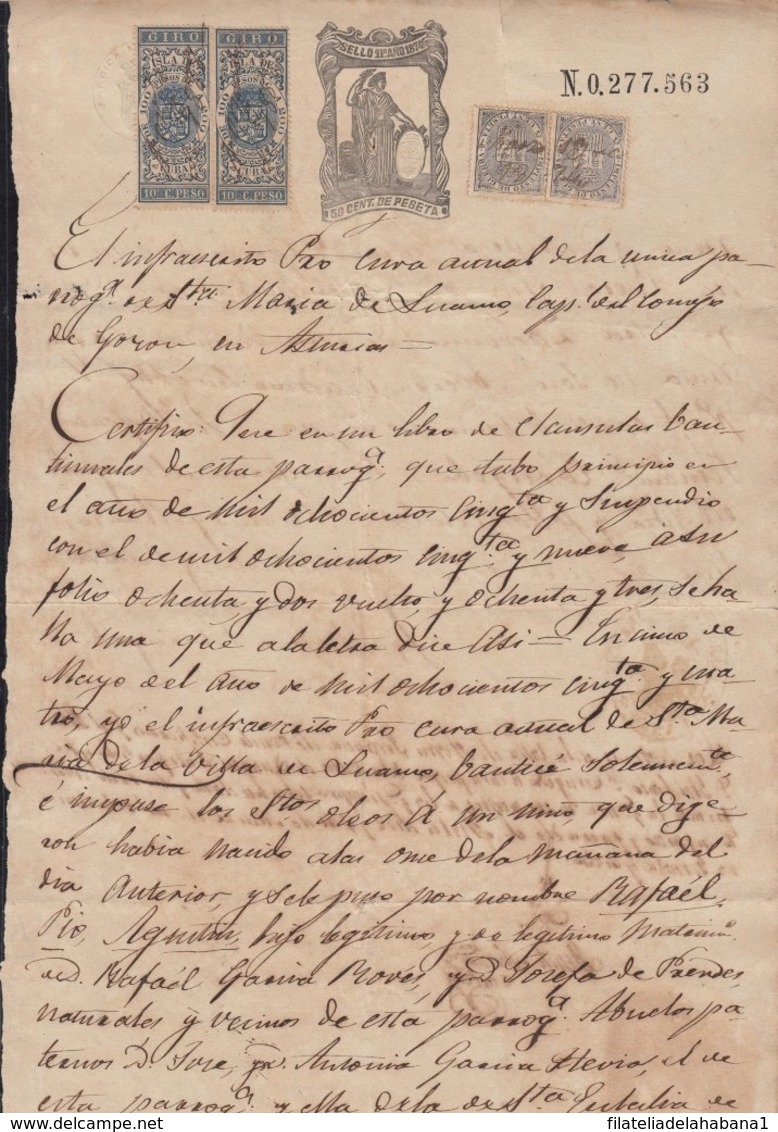 GIRO GIRO
ISLA DE ISLA DE
CUBA CUBA
10 C. PESO 10 C. PESO
SELLO 11º AÑO 1874
50 CENT. DE PESETA
N.0.277.563
El infraescrito Pro Cura actual de la unica pa-
rroqª de Sta Maria de Luanco, Capl del Concejo
de Gozon, en Asturias =
Certifico: Que en un libro de Clausulas bau-
tismales de esta parroqª, que tubo principio en
el año de mil ochocientos cinqta y
con el de mil ochocientos cinqta y nueve, a su
folio ochenta y dos vuelto, y ochenta y tres, se ha-
lla una que a la letra dice asi = En cinco de
Mayo del año de mil ochocientos cinqta y cua-
tro, yo el infraescrito Pro cura actual de Sta Ma-
ria de la villa de Luanco, bauticé solemnemte
é impuse los Stos oleos á un niño que dige-
ron habia nacido a las once de la mañana del
dia anterior, y se le puso por nombre Rafaél,
Pio, Agustin, hijo legitimo, y de legitimo Matrimº
de D. Rafaél Garcia Rovés, y Dª Josefa de Prendes,
naturales y vecinos de esta parroqª. Abuelos pa-
ternos D. Jose, y Dª Antonia Garcia Hevia, el de
esta parroqª, y ella de la de Sta Eulalia de
filateliadelahabana1